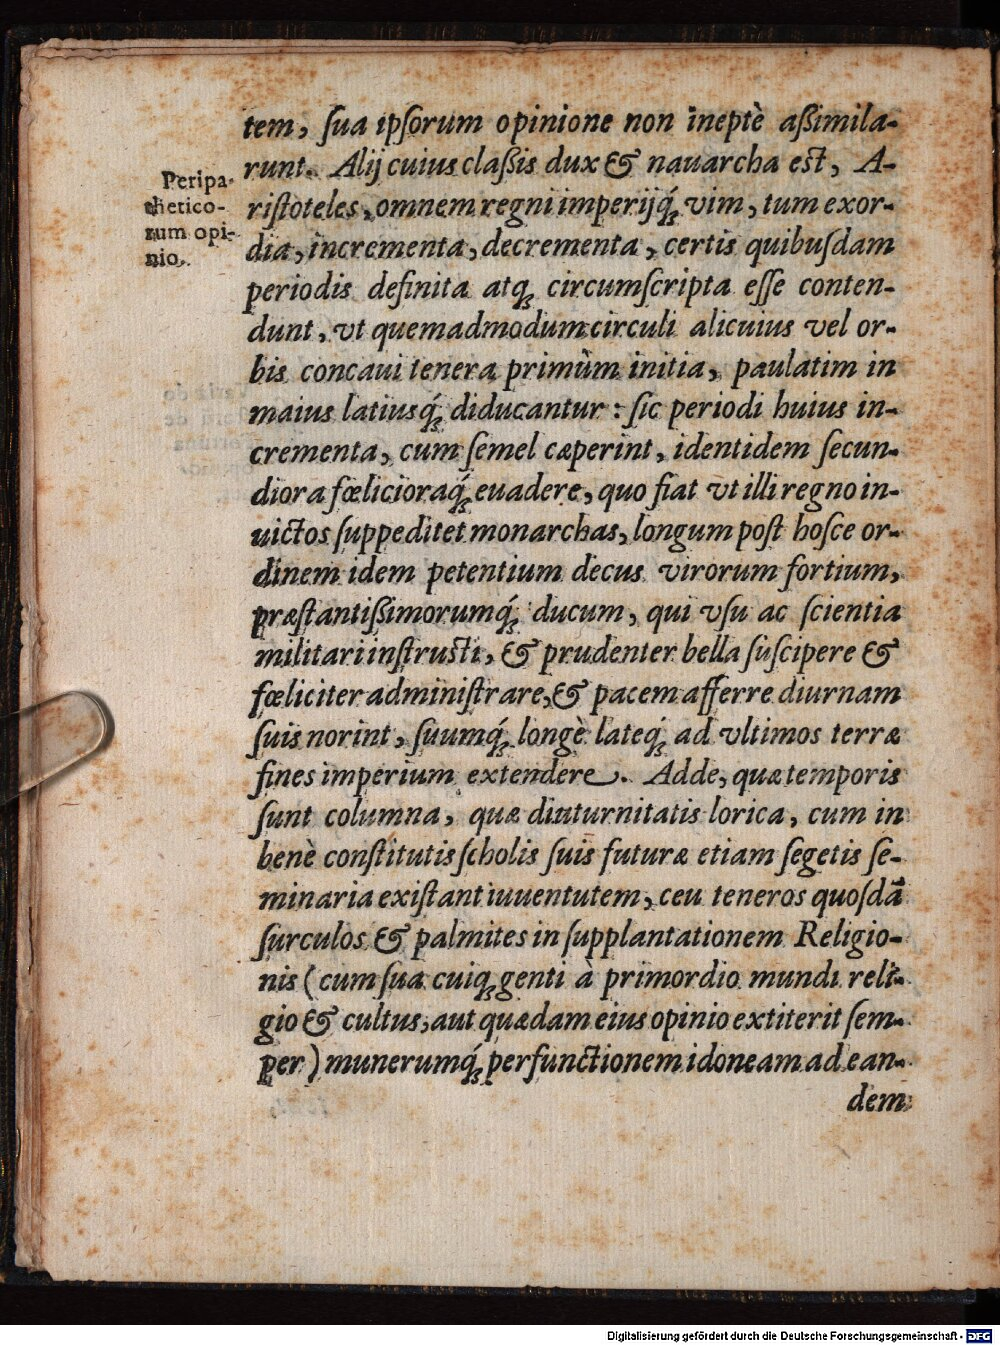 tem, ſua ipſorum opinione non ineptè aßimila-
runt. Alij cuius claßis dux & nauarcha est, A-
riſtoteles, omnem regni imperijq́ꝫ vim, tum exor-
dia, incrementa, decrementa, certis quibuſdam
periodis definita atqꝫ circumſcripta eſſe conten-
dunt, vt quemadmodum circuli alicuius vel or-
bis concaui tenera primùm initia, paulatim in
maius latiusq́ꝫ diducantur: ſic periodi huius in-
crementa, cum ſemel cæperint, identidem ſecun-
diora fœlicioraq́ꝫ euadere, quo fiat vt illi regno in-
uictos ſuppeditet monarchas, longum poſt hoſce or-
dinem idem petentium decus virorum fortium,
præſtantißimorumq́ꝫ ducum, qui vſu ac ſcientia
militari inſtructi, & prudenter bella ſuſcipere &
fœliciter adminiſtrare, & pacem afferre diurnam
ſuis norint, ſuumq́ꝫ longè lateq́ꝫ ad vltimos terræ
fines imperium extendere. Adde, quæ temporis
ſunt columna, quæ diuturnitatis lorica, cum in
benè conſtitutis ſcholis ſuis futuræ etiam ſegetis ſe-
minaria exiſtant iuuentutem, ceu teneros quoſdā
ſurculos & palmites in ſupplantationem Religio-
nis (cum ſua cuiqꝫ genti à primordio mundi reli-
gio & cultus, aut quædam eius opinio extiterit ſem-
per) munerumq́ꝫ perfunctionem idoneam ad ean-
dem
Peripa-
thetico-
rum opi-
nio.
Digitalisierung gefördert durch die Deutsche Forschungsgemeinschaft - DFG